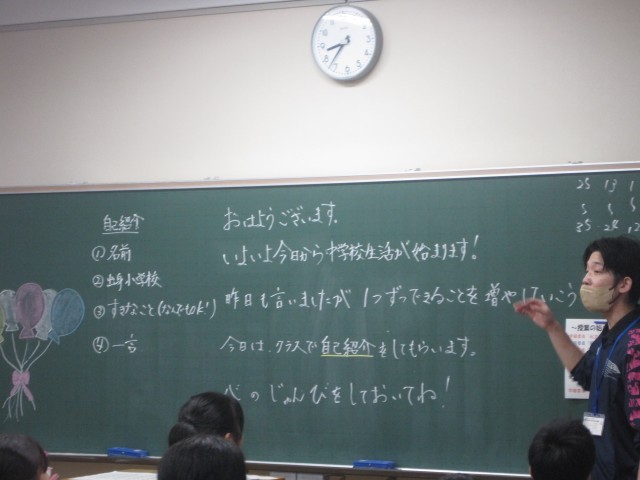 自己紹介
① 名前
② 出身小学校
③ すきなこと(なんでもOK!)
④ 一言
おはようございます。
いよいよ今日から中学校生活が始まります!
昨日も言いましたが 1つずつできることを増やしていこう
今日は、クラスで自己紹介をしてもらいます。
心のじゅんびをしておいてね!
25 13 1
S S S
35 24 12
～授業の